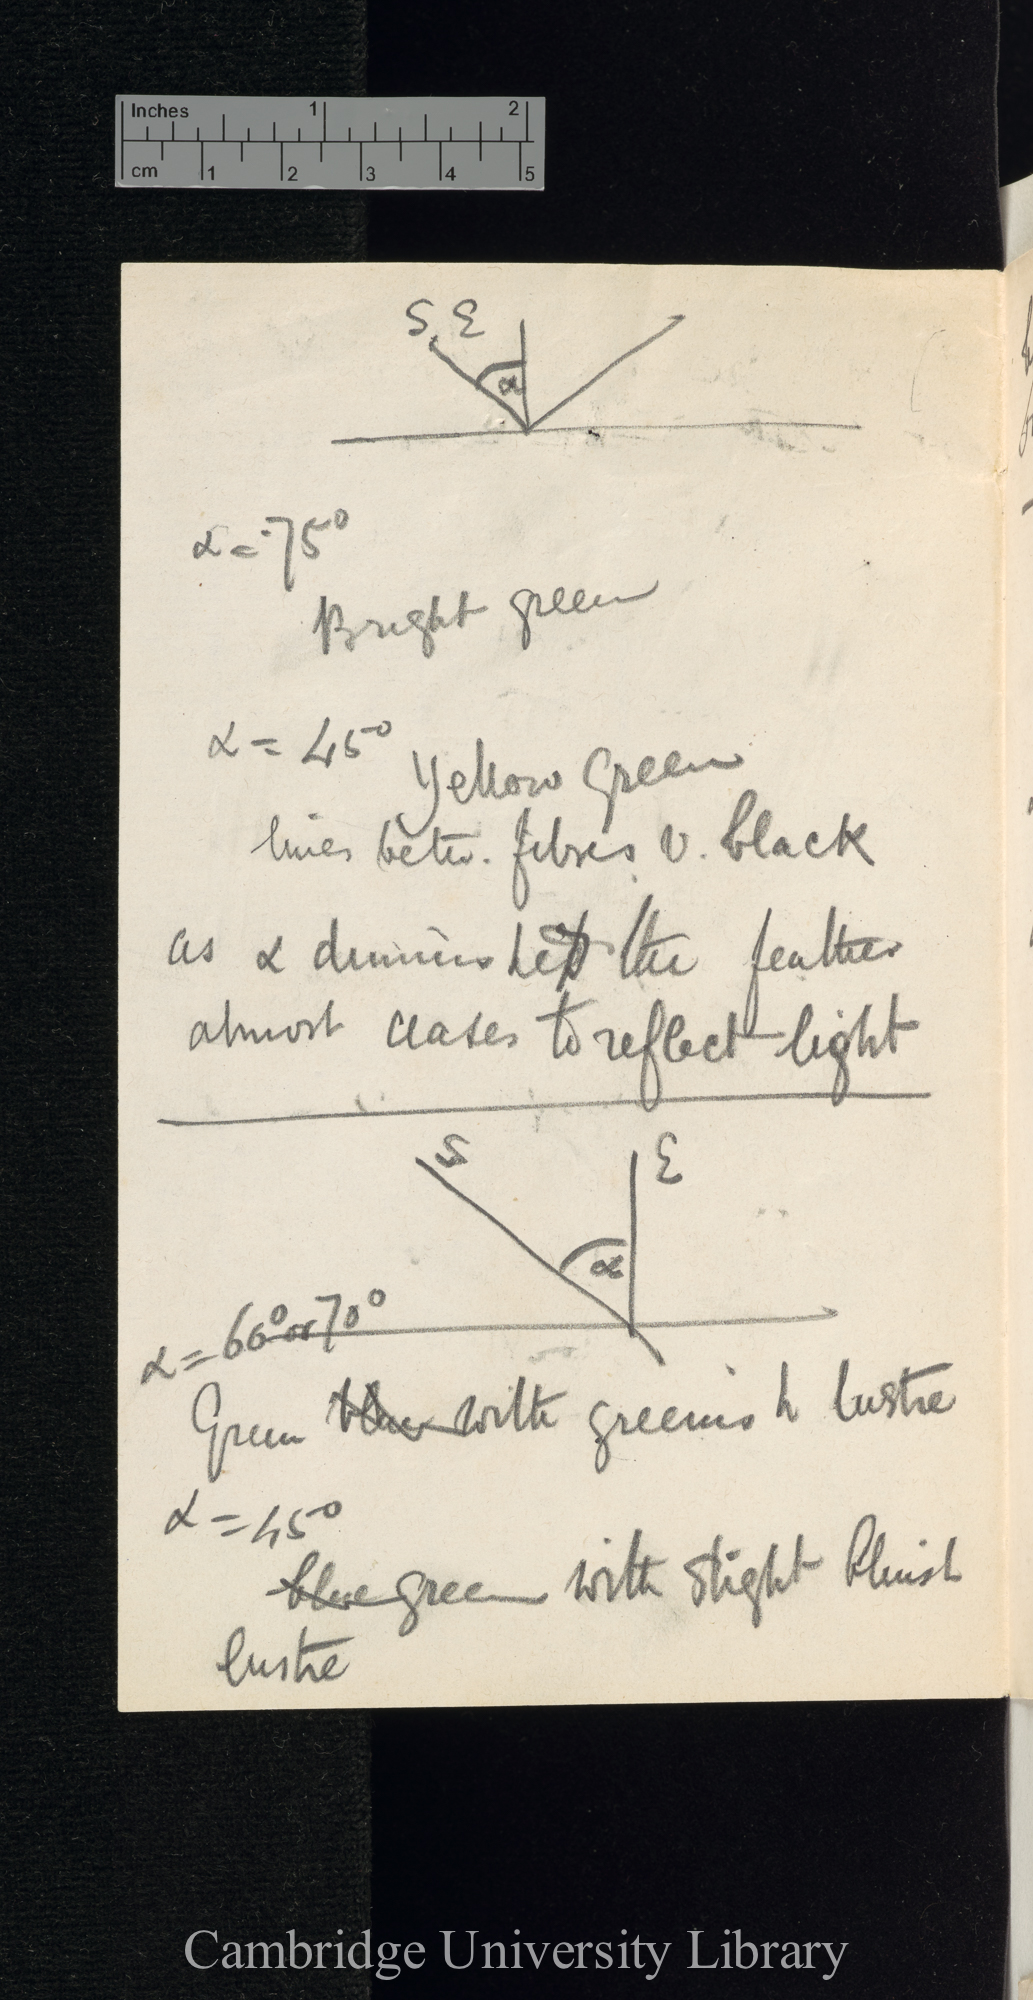 Inches 1 2
cm 1 2 3 4 5
S, E
α
α = 75°
Bright green
α = 45° Yellow Green
lines betw. fibres v. black
as α diminishes the feather
almost ceases to reflect light
S E
α
α = 60° or 70°
Green blue with greenish lustre
α = 45°
blue green with slight bluish
lustre
Cambridge University Library